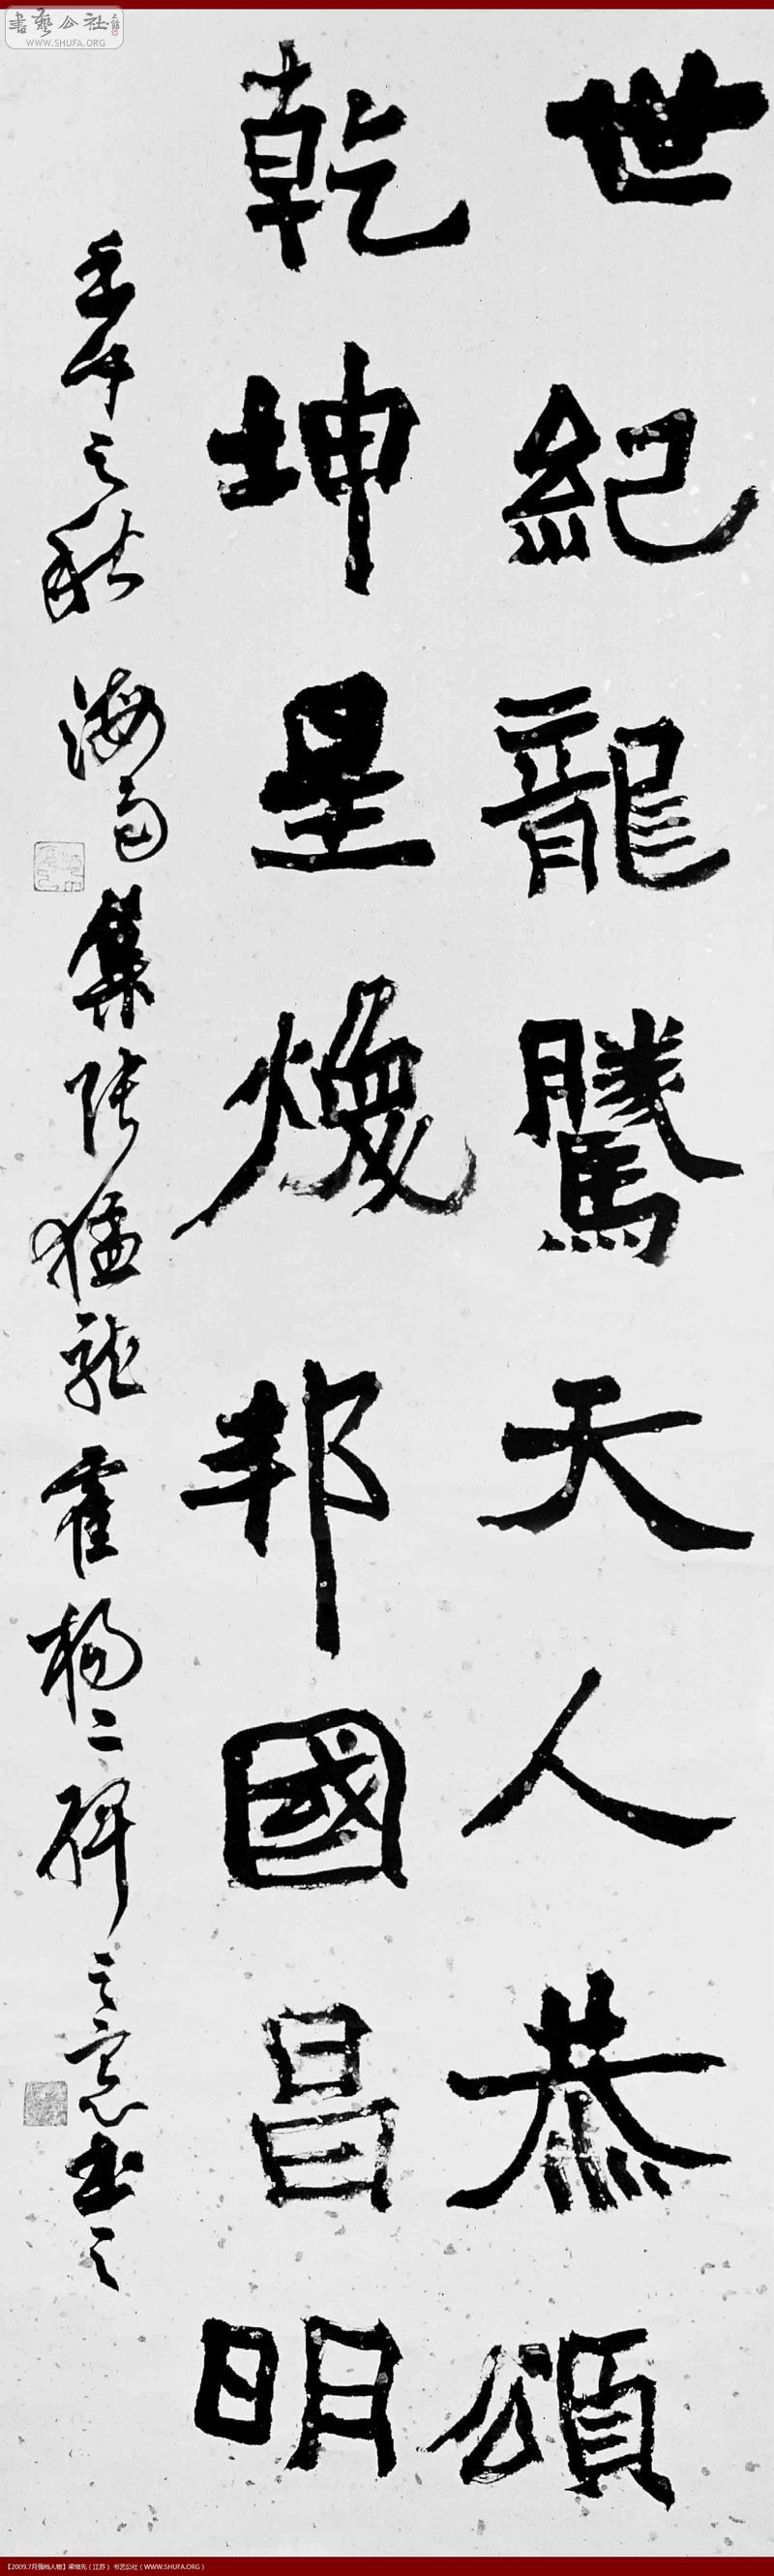 世紀龍騰天人恭頌
乾坤星煥邦國昌明
壬午之秋 海舟集張猛龍霍楊二碑之意書之
書藝公社
WWW.SHUFA.ORG
【2009.7月强档人物】梁培先（江苏） 书艺公社（WWW.SHUFA.ORG）